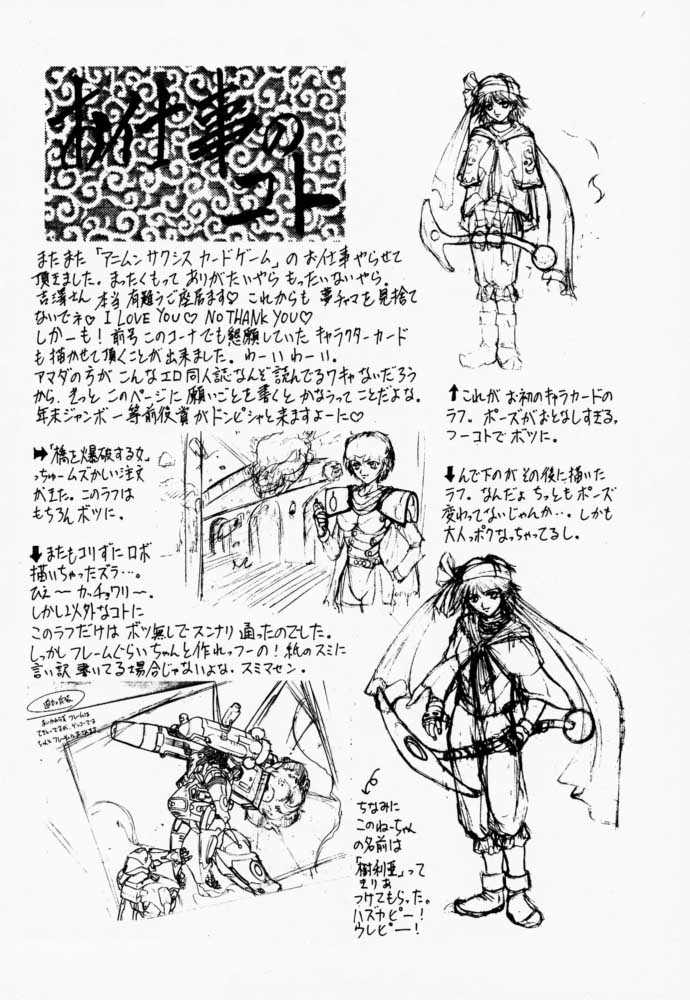 お仕事の
コト
またまた「アニムンサクシス カードゲーム」の お仕事 やらせて
頂きました。まったくもって ありがたいやら もったいないやら。
吉澤さん 本当 有難うご座居ます♡ これからも 夢チャマを 見捨て
ないでネ♡ I LOVE YOU♡ NO THANK YOU♡
しかーも! 前号 このコーナでも懇願していた キャラクターカード
も描かせて頂くことが出来ました。わーいわーい。
アマダの方が こんなエロ同人誌なんど読んでるワキャないだろう
から、きっと このページに 願いごとを書くと かなうってことだよな。
年末ジャンボ一等前後賞がドンピシャと来ますよーに♡
➡「橋を爆破する女」
っちゅームズかしい注文
がきた。このラフは
もちろんボツに。
⬇またもコリずにロボ
描いちゃったズラ…。
ひぇ〜カッチョワリ〜。
しかし以外なコトに
このラフだけは ボツ無しでスンナリ 通ったのでした。
しっかしフレームぐらいちゃんと作れっつーの! 紙のスミに
言い訳 書いてる場合じゃないよな。スミマセン。
⬆これが お初のキャラカードの
ラフ。ポーズがおとなしすぎる。
つーコトでボツに。
⬇んで下のが その後に描いた
ラフ。なんだょ ちっともポーズ
変わってないじゃんか…。しかも
大人っポクなっちゃってるし。
ちなみに
このねーちゃん
の名前は
「樹利亜」って
きりあ
つけてもらった。
ハズカピー!
ウレピー!